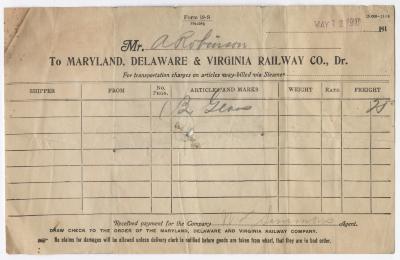 Form 19-S
MAY 12 191
191
Mr. A Robinson
To MARYLAND, DELAWARE & VIRGINIA RAILWAY CO., Dr.
For transportation charges on articles way-billed via Steamer
SHIPPER FROM No. Pkgs. ARTICLES AND MARKS WEIGHT RATE FREIGHT
1 B 25
Received payment for the Company Simmons Agent.
DRAW CHECK TO THE ORDER OF THE MARYLAND, DELAWARE AND VIRGINIA RAILWAY COMPANY.
No claims for damages will be allowed unless delivery clerk is notified before goods are taken from wharf, that they are in bad order.